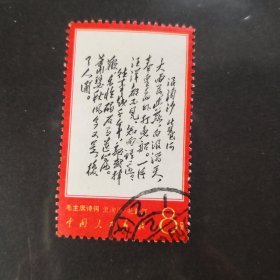 浪淘沙 北戴河
大雨落幽燕,白浪滔天,
秦皇岛外打鱼船。一片
汪洋都不见,知向谁边?
往事越千年,魏武挥鞭,
东临碣石有遗篇。
萧瑟秋风今又是,换
了人间。
毛主席诗词
中国人民
8